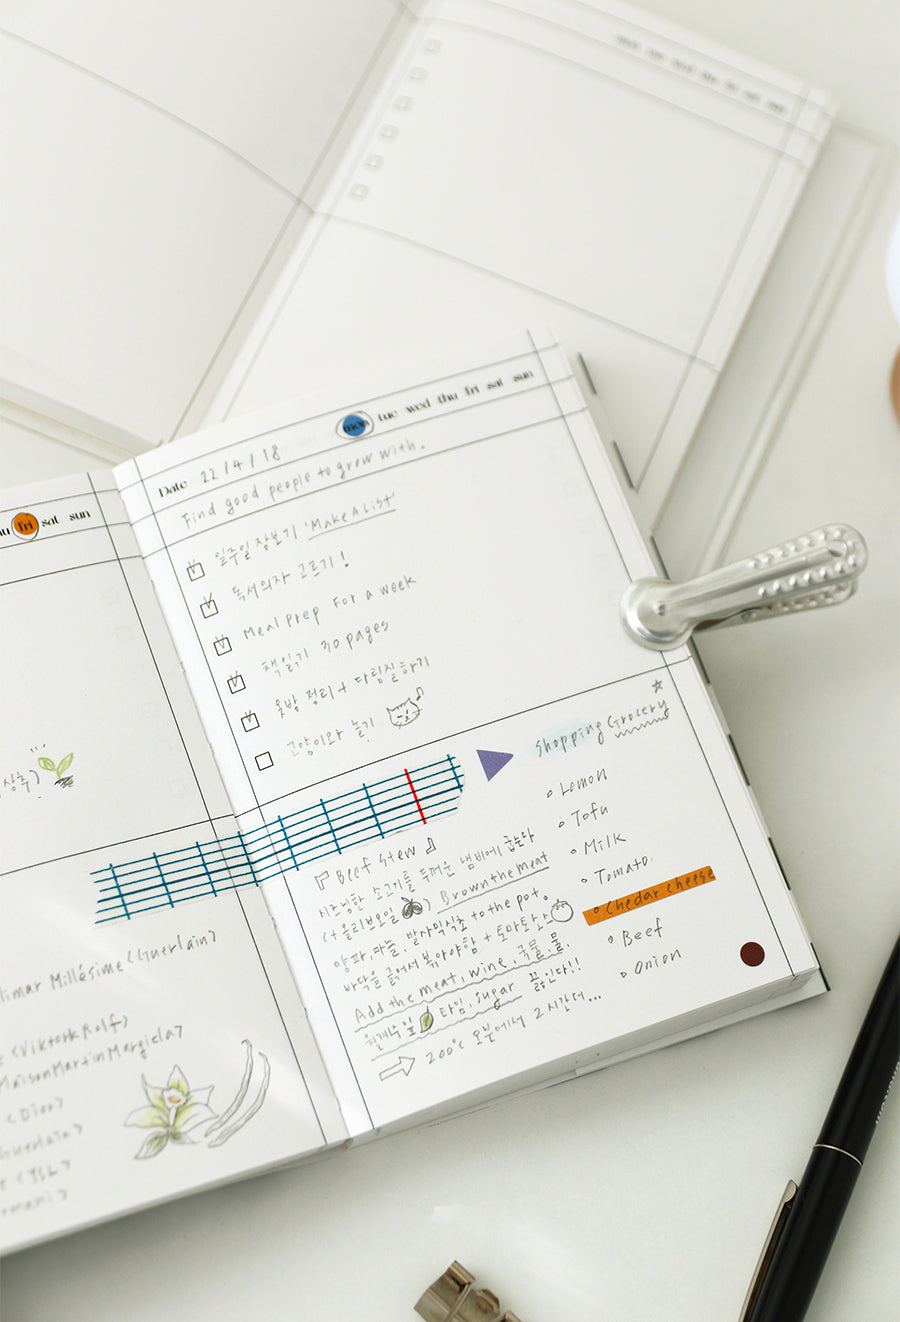 fri sat sun
상추)
Millésime <Guerlain>
<Viktor&Rolf>
MaisonMartinMargiela>
<Dior>
Guerlain>
<YSL>
mon tue wed thu fri sat sun
Date 22 / 4 / 18
Find good people to grow with.
일주일 장보기 'Make A List'
독서의자 고르기!
Meal prep For a week
책읽기 30 pages
옷방 정리 + 다림질하기
고양이와 놀기
Shopping Grocery
Lemon
Tofu
Milk
Tomato
Chedar cheese
Beef
Onion
『Beef Stew』
시즈닝한 소고기를 두꺼운 냄비에 굽는다
(+올리브오일) Brown the meat
양파, 마늘, 발사믹식초 to the pot.
바닥을 긁어서 볶아야함 + 토마토
Add the meat, wine, 국물, 물,
월계수잎 타임, sugar 끓인다!!
200°C 오븐에서 2시간더...